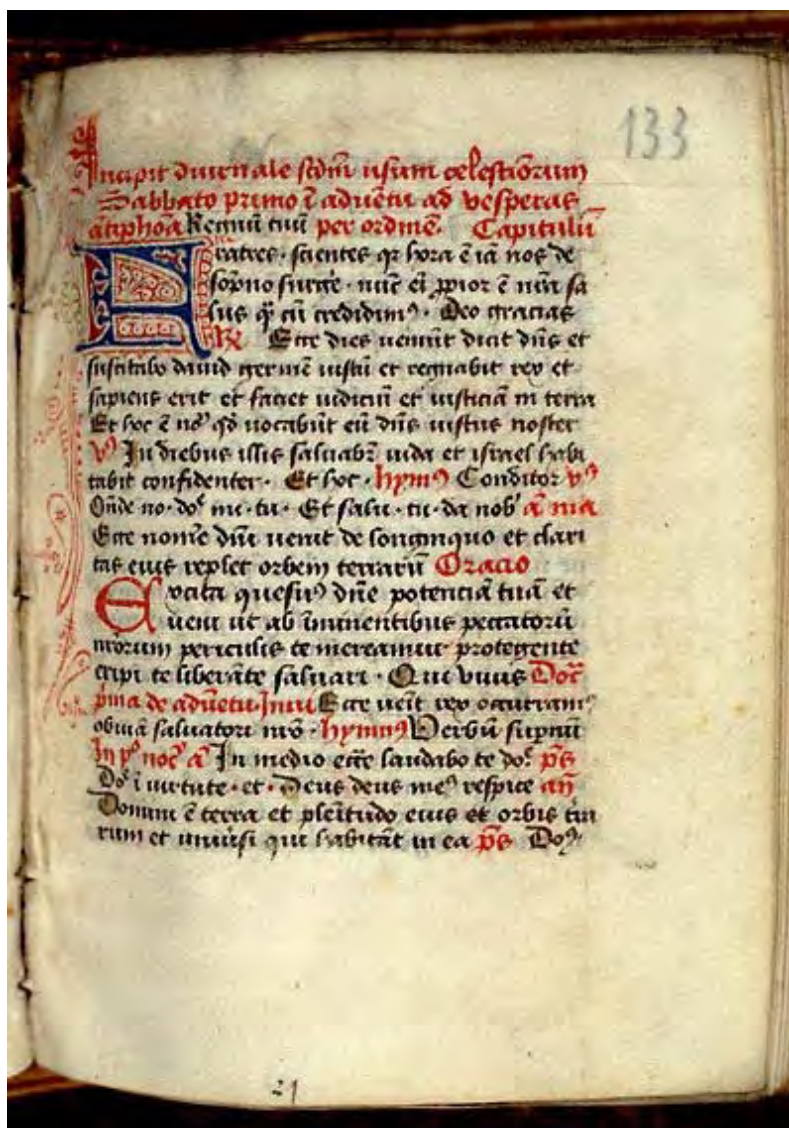 133
Incipit diurnale scdm usum celestiorum
Sabbato primo ī aduētu ad vesperas
ātiphoā Regnū tuū per ordinē. Capitulū
Fratres · scientes qr hora ē iā nos de
sōpno surgē · nūc eī ꝓpior ē nrā sa
lus qͣ cū credidimꝰ · Deo gracias
R̄ Ecce dies ueniūt dicit dn̄s et
suscitabo dauid germē iustū et regnabit rex et
sapiens erit et faciet iudiciū et iusticiā in terra
Et hoc ē noͥ qd̄ uocabūt eū dn̄s iustus noster
vꝰ In diebus illis saluabr̄ iuda et israel habi
tabit confidenter · Et hoc · hymꝰ Conditor vꝰ
Oñde no · doᵉ mi · tu · Et salu · tu · da nobˢ ā ma
Ecce nomē dñi uenit de longinquo et clari
tas eius replet orbem terrarū Oracio
Excita quesuꝰ dn̄e potenciā tuā et
ueni ut ab īminentibus peccatorū
nrōrum periculis te mereamur protegente
eripi te liberāte saluari · Qui viuis Doᶜ
pͥma de aduētu · Inui Ecce ueīt rex occurramꝰ
obuiā saluatori nrō · hymnꝰ Verbū supnū
In pͦ nocͦ ā In medio ecc̄e laudabo te doᵉ p̄s
Doᵉ ī uirtute · et · Deus deus meꝰ respice añ
Domini ē terra et plēitudo eius et orbis ter
rarum et uniūsi qui habitāt in ea p̄s Doꝰ
21